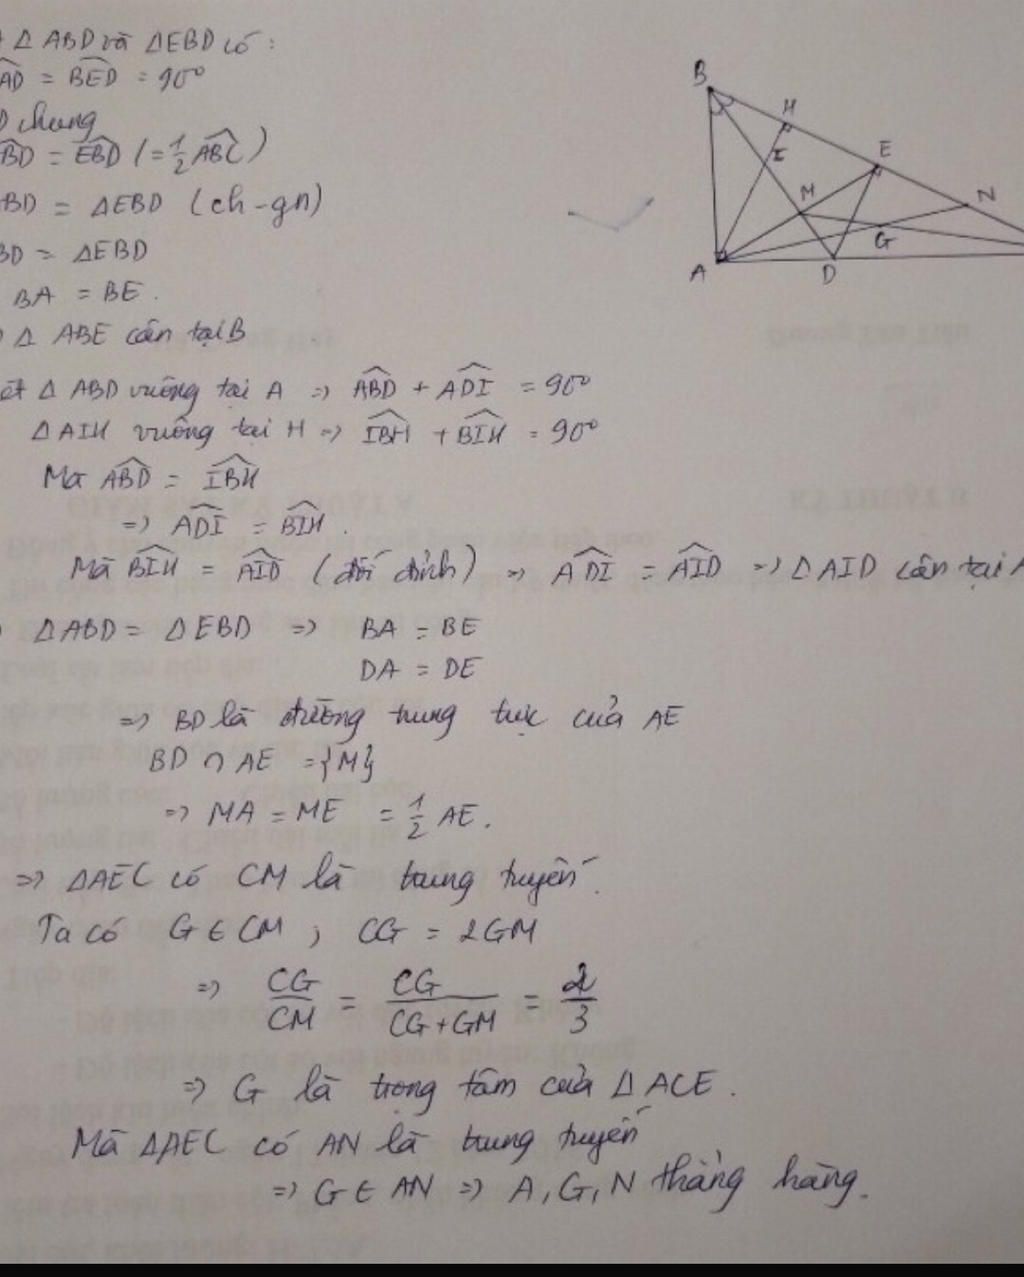 Δ ABD và ΔEBD có :
AD = BED = 90°
chung
BD = EBD (= 1/2 ABC)
BD = ΔEBD (ch - gn)
BD = ΔEBD
BA = BE.
Δ ABE cân tại B
ét Δ ABD vuông tại A => ABD + ADI = 90°
ΔAIH vuông tại H => IBH + BIH = 90°
Mà ABD = IBH
=> ADI = BIH.
Mà BIH = AID (đối đỉnh) => ADI = AID => ΔAID cân tại A
ΔABD = ΔEBD => BA = BE
DA = DE
=> BD là đường trung trực của AE
BD ∩ AE = {M}
=> MA = ME = 1/2 AE.
=> ΔAEC có CM là trung tuyến.
Ta có G ∈ CM ; CG = 2GM
=> CG/CM = CG/CG+GM = 2/3
=> G là trọng tâm của Δ ACE.
Mà ΔAEC có AN là trung tuyến
=> G ∈ AN => A, G, N thẳng hàng.
B
H
I
E
M
N
G
A
D